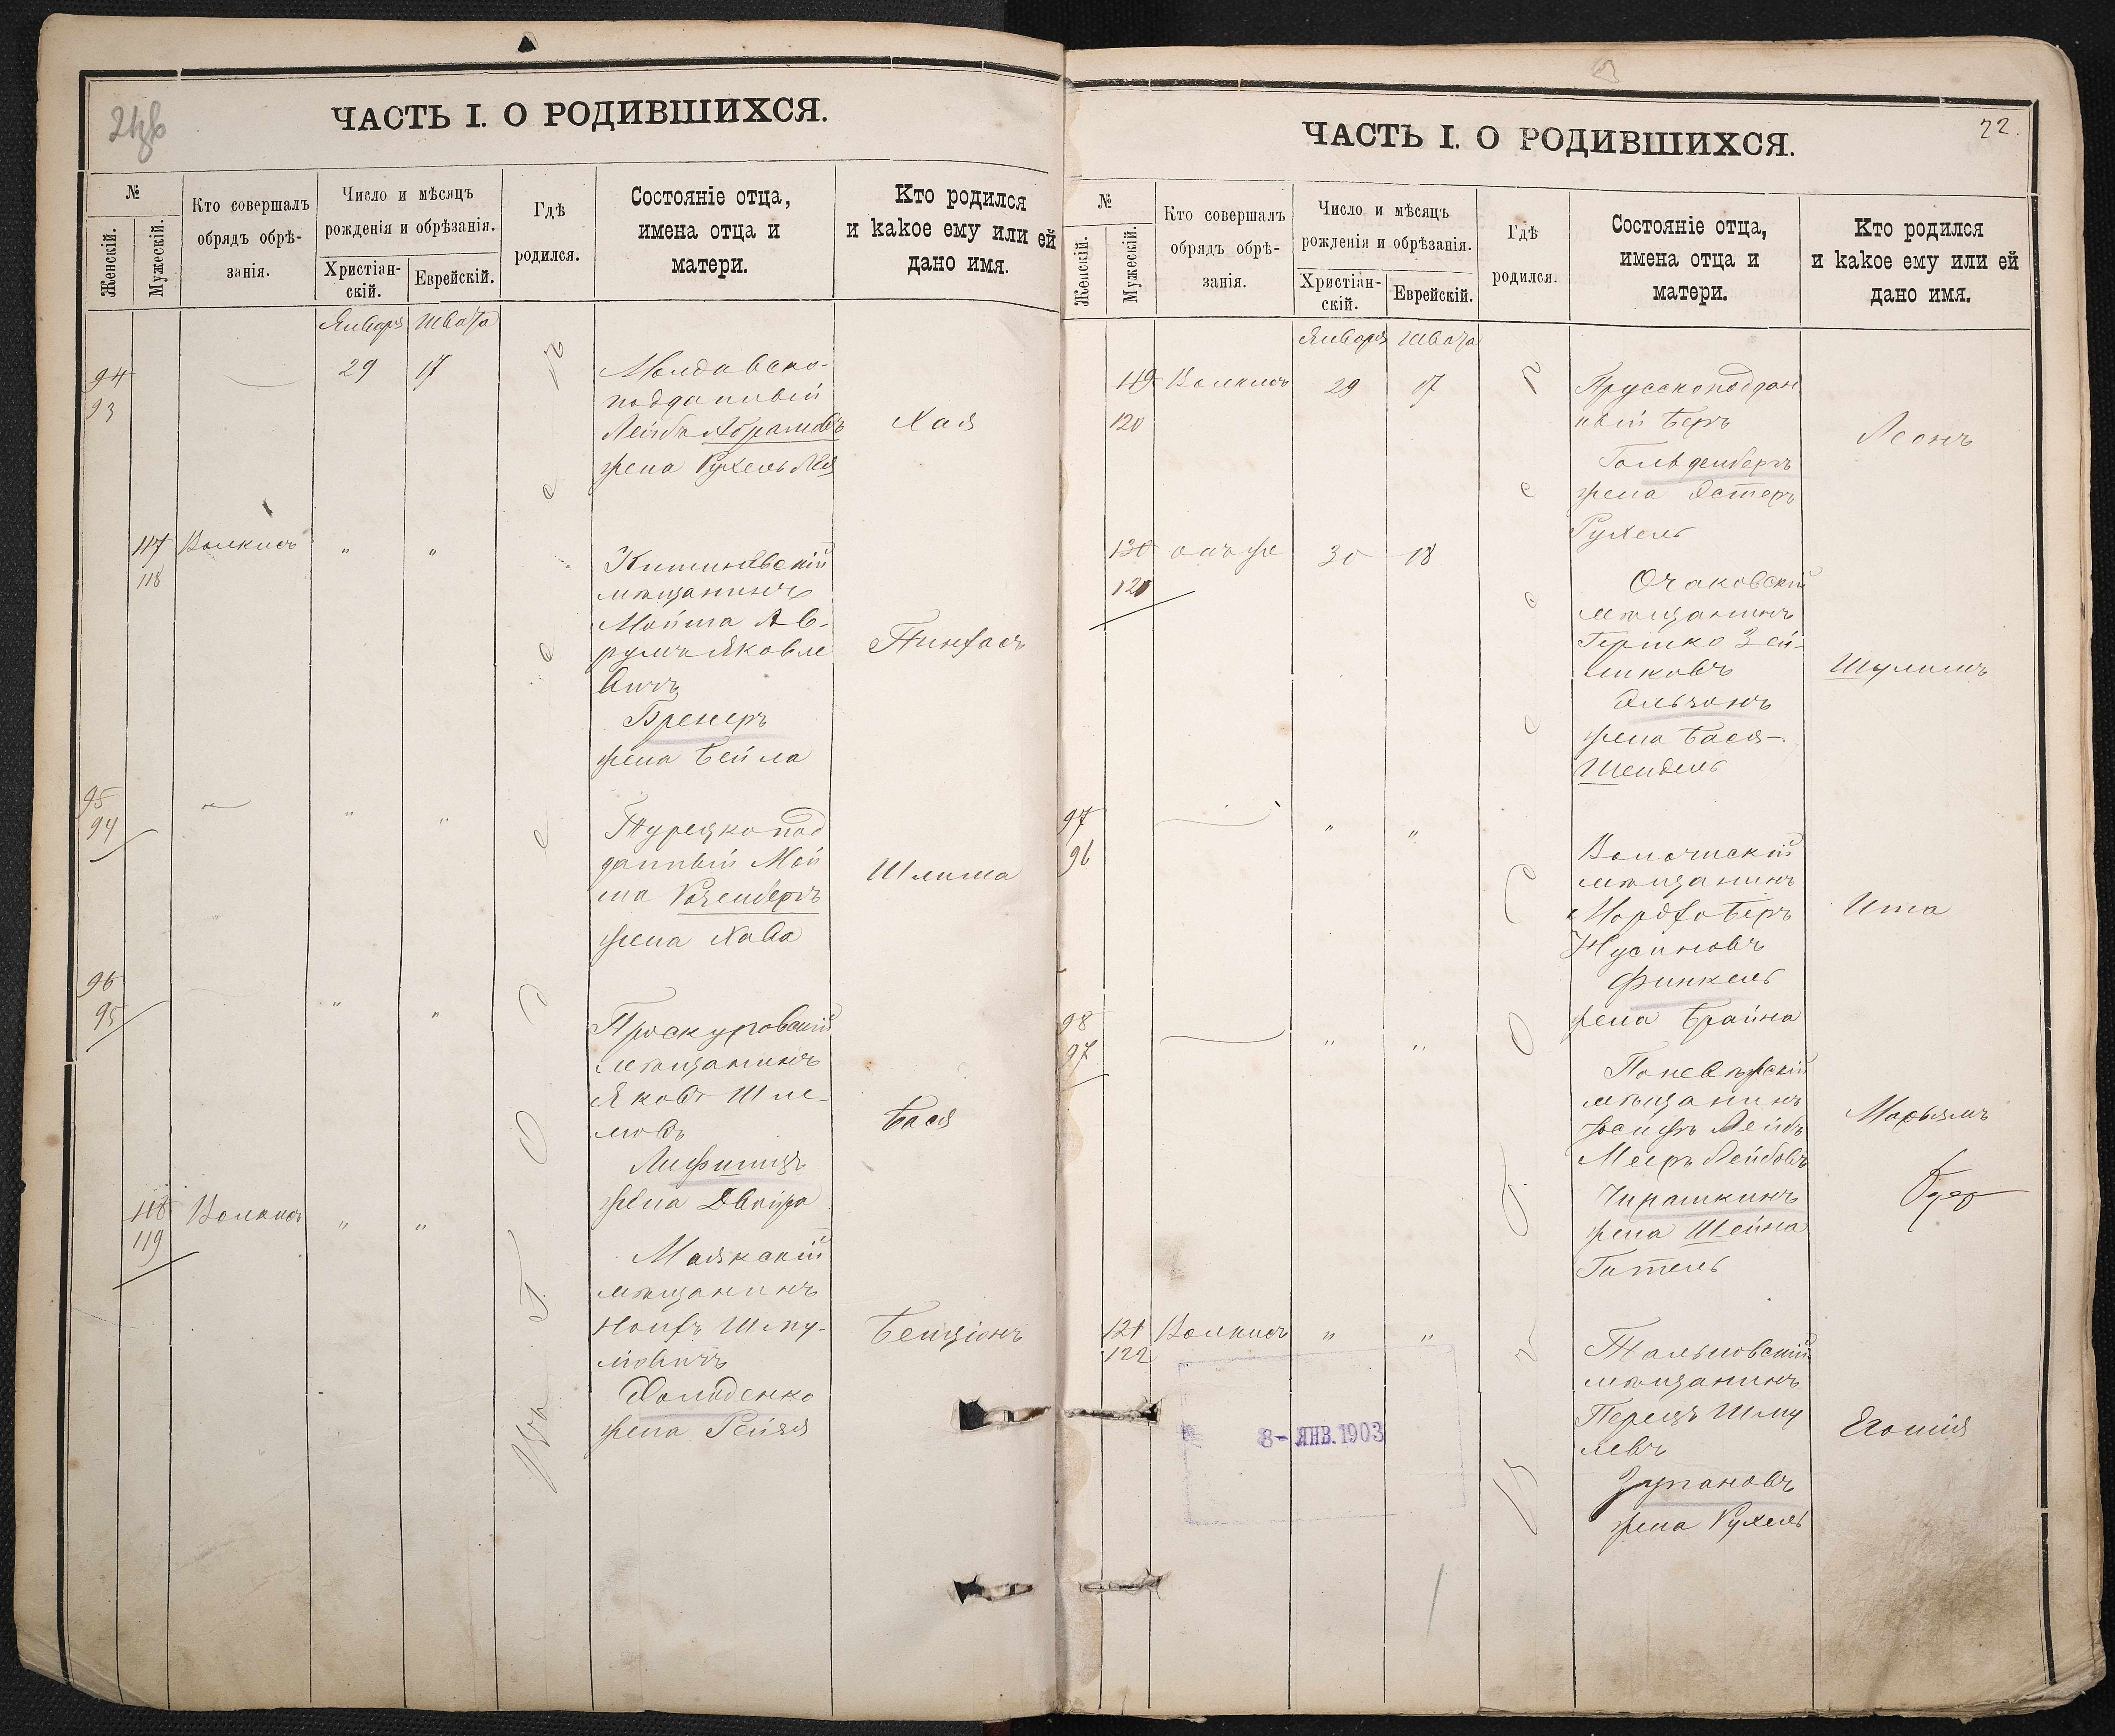 ЧАСТЬ I. О РОДИВШИХСЯ.
№
Женскій.
Мужескій.
Кто совершалъ
обрядъ обрѣ-
занія.
Число и мѣсяцъ
рожденія и обрѣзанія.
Христіан-
скій.
Еврейскій.
Гдѣ
родился.
Состояніе отца,
имена отца и
матери.
Кто родился
и какое ему или ей
дано имя.
Января Швата
94
93
29 17
Молдавско-
подданный
Лейба Абрамовъ
жена Рухель Лея
Хая
117
118
Волкисъ
" "
Кишиневскій
мѣщанинъ
Мойша Ав-
румъ Яковле
вичъ
Бренеръ
жена Бейла
Пинхасъ
95
94
" "
Турецкопод
данный Мой
ша Розенбергъ
жена Хава
Шлима
96
95
" "
Проскуровскій
мѣщанинъ
Яковъ Шле-
мовъ
Лифшицъ
жена Двойра
Бася
118
119
Волкисъ
" "
Маякскій
мѣщанинъ
Шму-
ловичъ
Холоденко
жена Рейзя
Бенціонъ
ЧАСТЬ I. О РОДИВШИХСЯ.
22.
№
Женскій.
Мужескій.
Кто совершалъ
обрядъ обрѣ-
занія.
Число и мѣсяцъ
рожденія и обрѣзанія.
Христіан-
скій.
Еврейскій.
Гдѣ
родился.
Состояніе отца,
имена отца и
матери.
Кто родился
и какое ему или ей
дано имя.
Января Швата
119
120
Волкисъ
29 17
Прусскоподдан
ный Беръ
Гольденбергъ
жена Эстеръ
Рухель
Леонъ
онъ же
30 18
Очаковскій
мѣщанинъ
Гершко Зей-
ликовъ
жена Бася-
Шендель
Шулимъ
97
96
" "
мѣщанинъ
Мордхо Беръ
Нусиновъ
Финкель
жена Брайна
Ита
98
97
" "
Поневѣжскій
мѣщанинъ
Лейбъ
Мееръ Лейбовъ
Чирашкинъ
жена Шейна
Гитель
Марьямъ
121
122
Волкисъ
" "
Тальновскій
мѣщанинъ
Перецъ Шму
левъ
Зупановъ
жена Рухель
8- ЯНВ. 1903